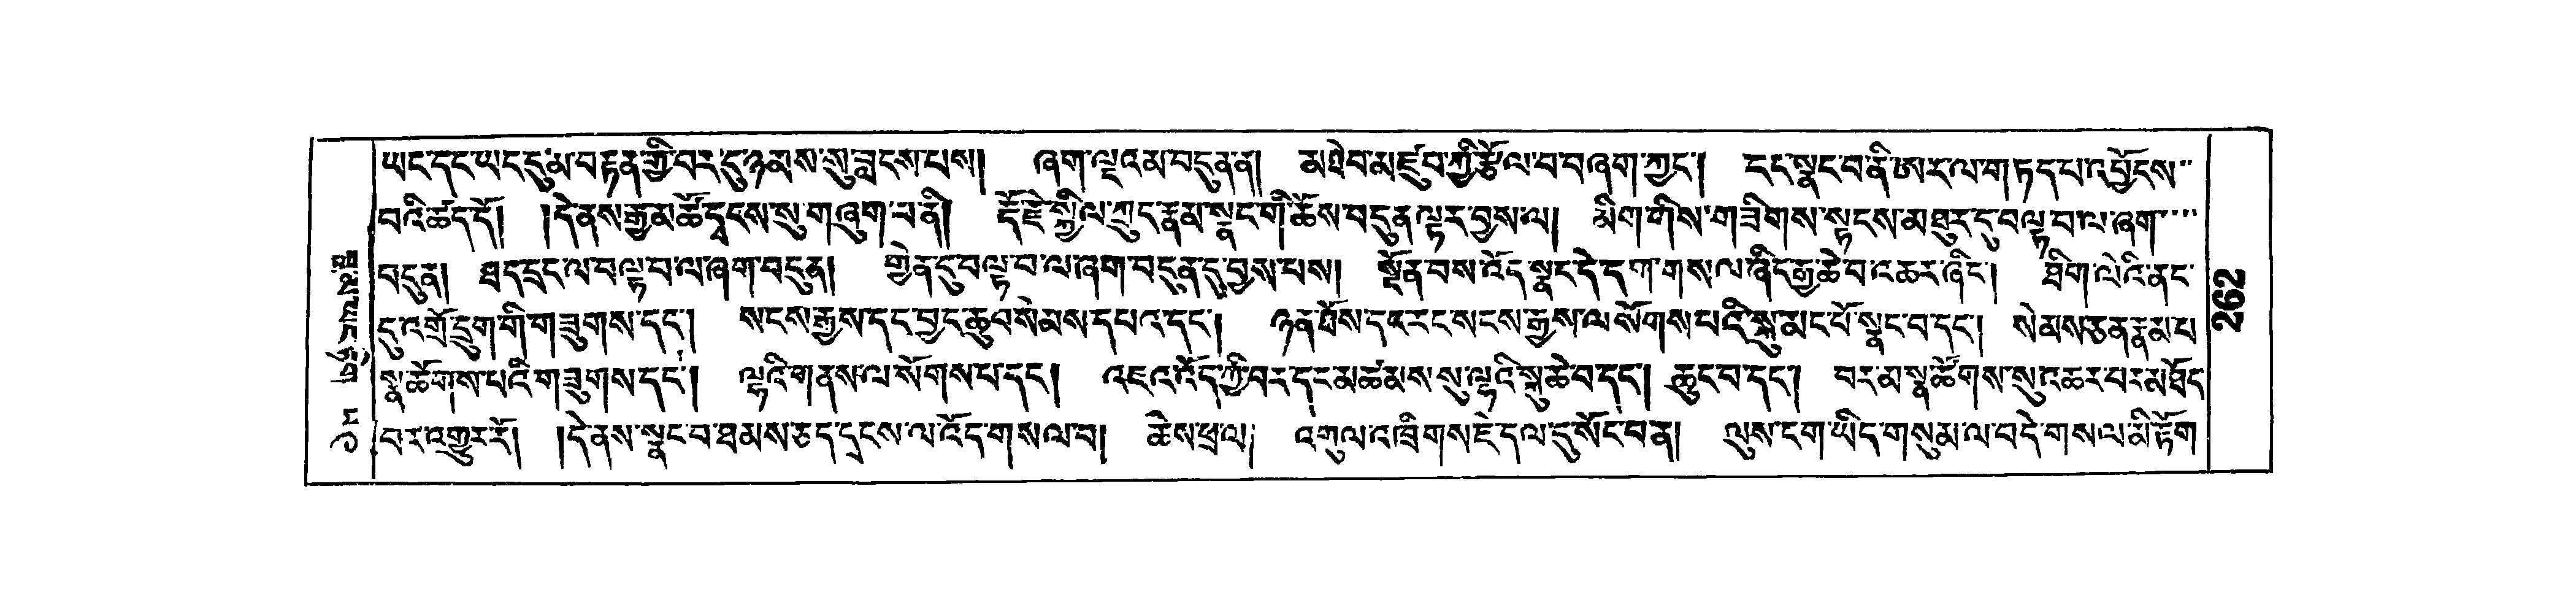 ཡང་དང་ཡང་དུ་མ་བརྟན་གྱི་བར་དུ་ཉམས་སུ་བླངས་པས། ཞག་ལྔའམ་བདུན་ན། མཐེབ་མཛུབ་ཀྱི་རྩོལ་བ་བཞག་ཀྱང་། དང་སྣང་བ་ནི་ཨར་ལ་གཏད་པ་འབྱོངས་
བའི་ཚད་དོ། །དེ་ནས་རྒྱ་མཚོ་དྭངས་སུ་གཞུག་པ་ནི། རྡོ་རྗེ་སྐྱིལ་ཀྲུང་རྣམ་སྣང་གི་ཆོས་བདུན་ལྟར་བྱས་ལ། མིག་གིས་གཟིགས་སྟངས་མཐུར་དུ་བལྟ་བ་ལ་ཞག་
བདུན། ཐད་དྲང་ལ་བལྟ་བ་ལ་ཞག་བདུན། གྱེན་དུ་བལྟ་བ་ལ་ཞག་བདུན་དུ་བྱས་པས། སྔོན་བས་འོད་སྣང་དེ་དག་གསལ་ཞིང་རྒྱ་ཆེ་བ་འཆར་ཞིང་། ཐིག་ལེའི་ནང་
དུ་འགྲོ་དྲུག་གི་གཟུགས་དང་། སངས་རྒྱས་དང་བྱང་ཆུབ་སེམས་དཔའ་དང་། ཉན་ཐོས་དང་རང་སངས་རྒྱས་ལ་སོགས་པའི་སྐུ་མང་པོ་སྣང་བ་དང་། སེམས་ཅན་རྣམ་པ་
སྣ་ཚོགས་པའི་གཟུགས་དང་། ལྷའི་གནས་ལ་སོགས་པ་དང་། འཇའ་འོད་ཀྱི་བར་དང་མཚམས་སུ་ལྷའི་སྐུ་ཆེ་བ་དང་། ཆུང་བ་དང་། བར་མ་སྣ་ཚོགས་སུ་འཆར་བར་མཐོང་
བར་འགྱུར་རོ། །དེ་ནས་སྣང་བ་ཐམས་ཅད་དྭངས་ལ་འོད་གསལ་བ། ཆེས་ཕྲ་ལ། འགུལ་འཁྲིགས་ཇེ་དལ་དུ་སོང་བ་ན། ལུས་ངག་ཡིད་གསུམ་ལ་བདེ་གསལ་མི་རྟོག